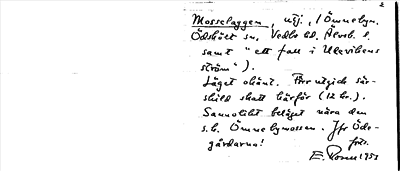 2
Mosselaggen, utj., (Ömnebyn.
Ödskölt sn. Vedbo hd. Älvsb. l.
samt "ett fall i Ulervikens
ström").
Läget okänt. Förr utgick sär-
skild skatt härför (12 kr.).
Sannolikt beläget nära den
s.k. Ömnebymossen. Jfr Öde-
gårdarna! förs.
E. Rosen 1953